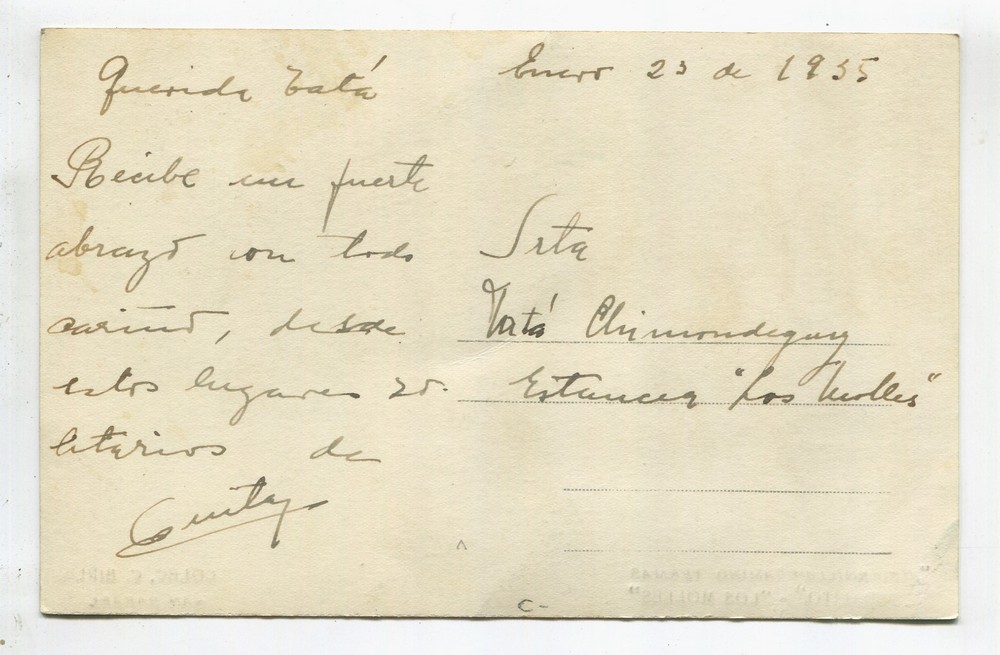 Enero 23 de 1935
Querida Tatá
Recibe un fuerte
abrazo con todo
cariño, desde
estos lugares so-
litarios de
Srta
Tatá Chimondeguy
Estancia "Los Molles"
C-